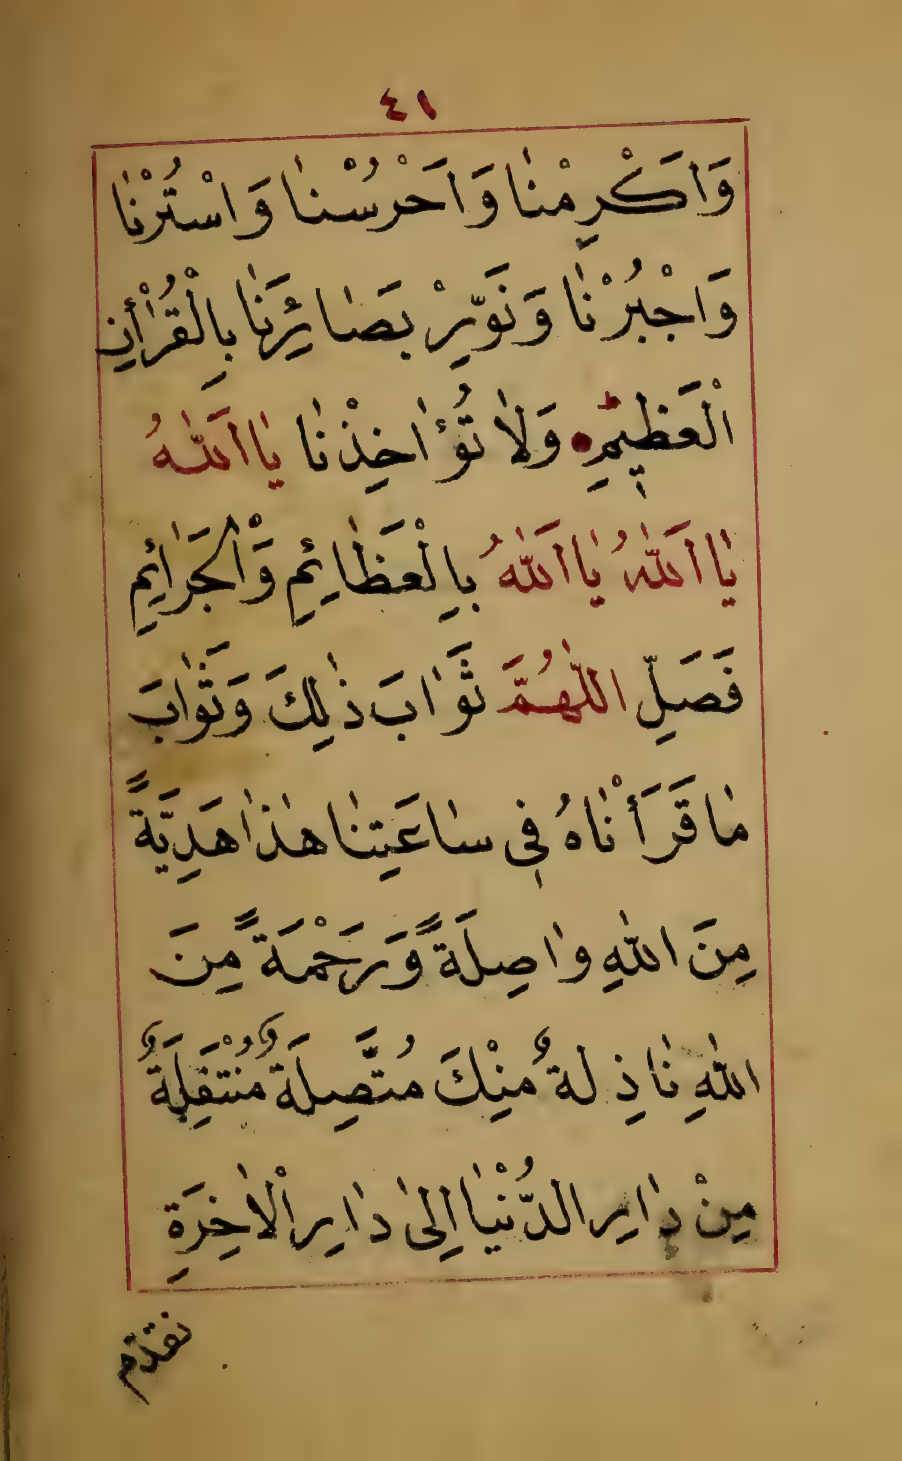 ٤١
وَاَكْرِمْنٰا وَاَحْرُسْنٰا وَاسْتُرْنٰا
وَاجْبُرْنٰا وَنَوِّرْ بَصٰائِرَنٰا بِالْقُرْأٰنِ
الْعَظٖيمِ وَلاٰ تُؤٰاخِذْنٰا يٰا اَللّٰهُ
يٰا اَللّٰهُ يٰا اَللّٰهُ بِالْعَظٰائِمِ وَالْجَرٰائِمِ
فَصَلِّ اللّٰهُمَّ ثَوٰابَ ذٰلِكَ وَثَوٰابَ
مٰا قَرَأْنٰاهُ فٖى سٰاعَتِنٰا هٰذٰا هَدِيَّةً
مِنَ اللّٰهِ وٰاصِلَةً وَرَحْمَةً مِنَ
اللّٰهِ نٰاذِلَةٌ مِنْكَ مُتَّصِلَةٌ مُنْتَقِلَةٌ
مِنْ دٰارِ الدُّنْيٰا اِلىٰ دٰارِ الْاٰخِرَةِ
نقدّم